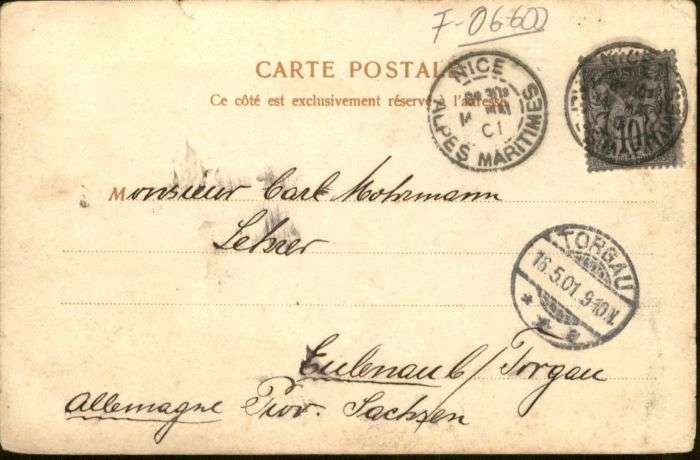 F-06-600
CARTE POSTALE
Ce côté est exclusivement réservé à l'adresse
NICE
ALPES MARITIMES
01
NICE
10
Monsieur Carl Mohrmann
Lehrer
TORGAU
16.5.01.9-10.V.
Eulenau b/Torgau
Allemagne Prov. Sachsen